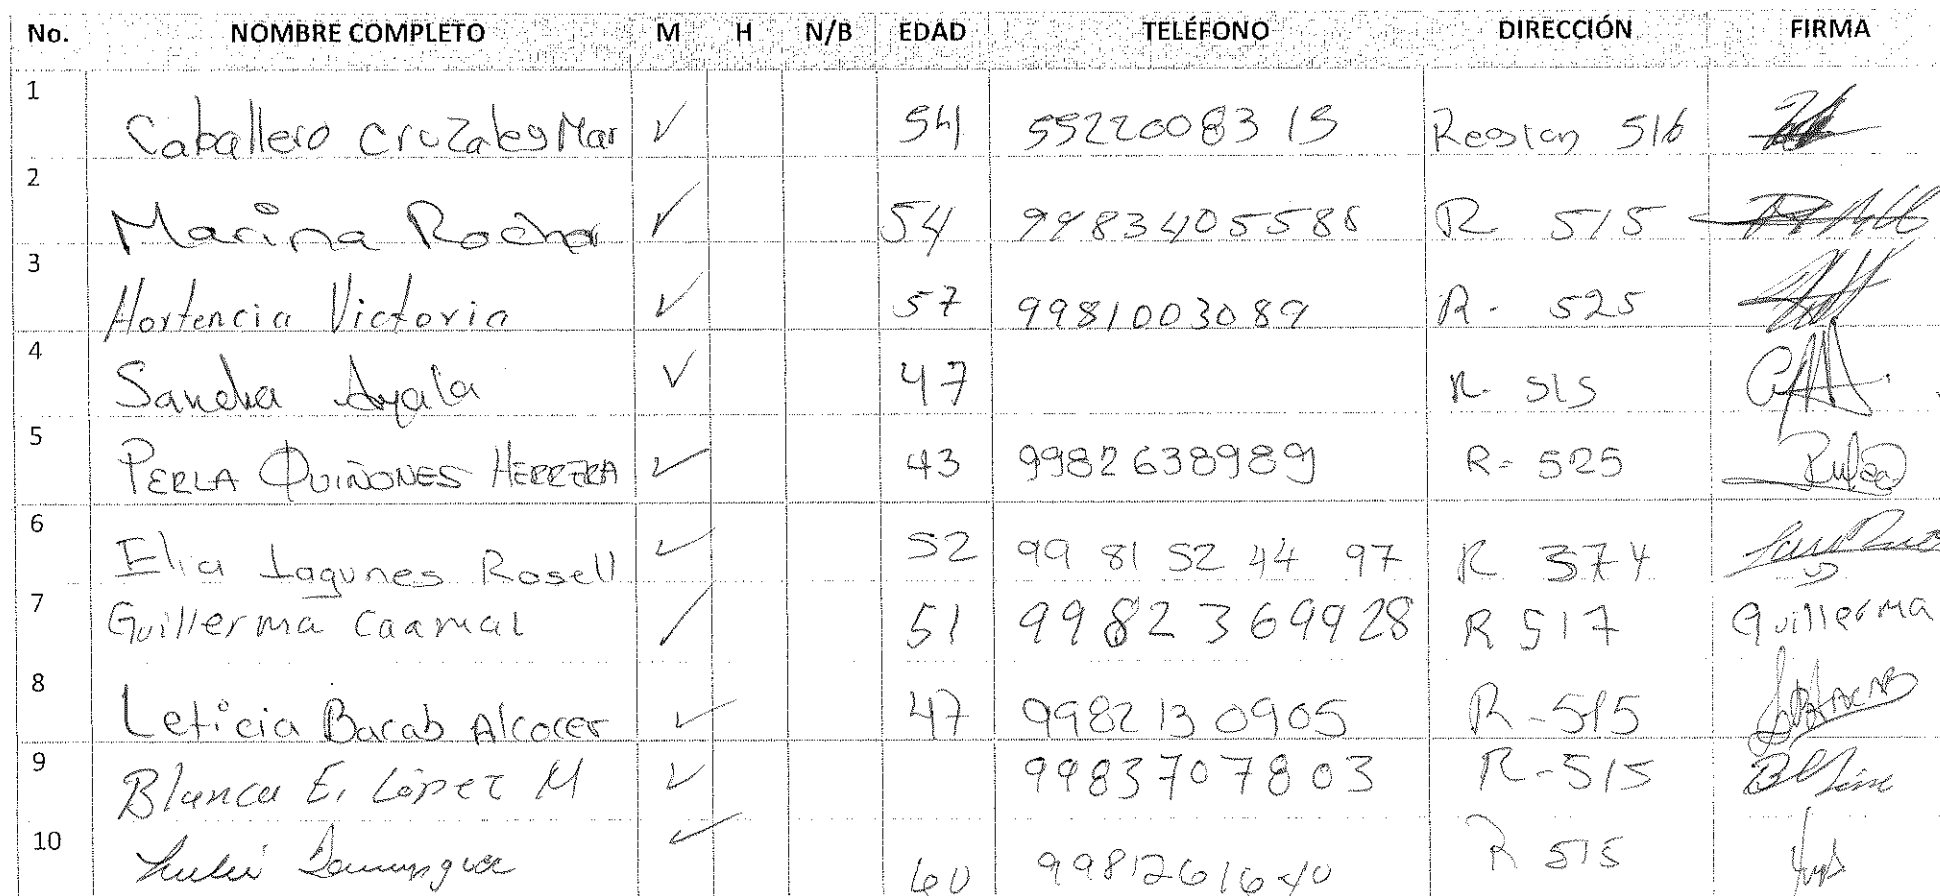 No. NOMBRE COMPLETO M H N/B EDAD TELÉFONO DIRECCIÓN FIRMA
1 Caballero Cruzaley Mar ✓ 54 5522008315 Region 516
2 Marina Rocha ✓ 54 9983405586 R 515
3 Hortencia Victoria ✓ 57 9981003089 R- 525
4 Sandra Ayala ✓ 47 R- 515
5 PERLA QUIÑONES HERRERA ✓ 43 9982638989 R- 525
6 Elia Lagunes Rosell ✓ 52 99 81 52 44 97 R 374
7 Guillerma Caamal / 51 9982369928 R 517 Guillerma
8 Leticia Bacab Alcocer ✓ 47 9982130905 R-515
9 Blanca E. López M ✓ 9983707803 R-515
10 Dominguez ✓ 60 9981261640 R 515